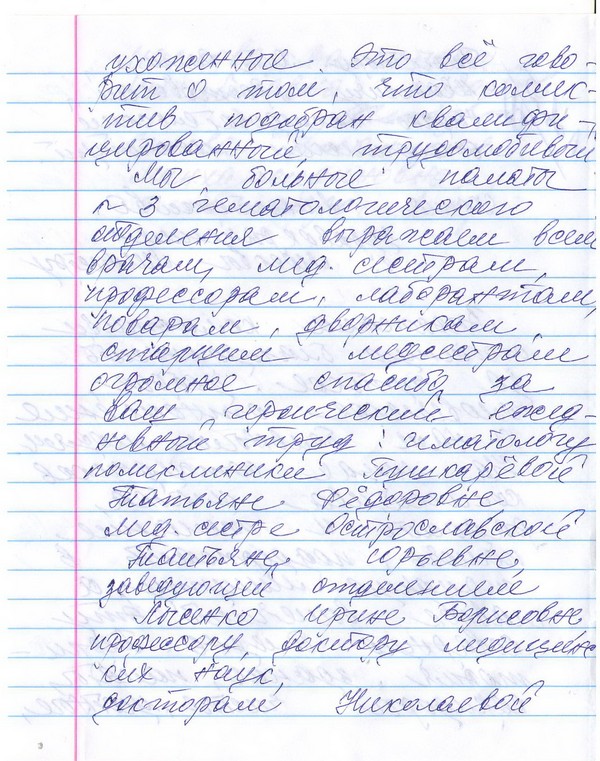 ухоженные. Это всё гово-
рит о том, что коллек-
тив подобран квалифи-
цированный, трудолюбивый
Мы больные палаты
№ 3 гематологического
отделения выражаем всем
врачам, мед. сестрам,
профессорам, лаборантам,
поварам, дворникам
старшим медсестрам
огромное спасибо за
ваш героический ежед-
невный труд: гематологу
поликлиники Пушкарёвой
Татьяне Фёдоровне
мед. сестре Острославской
Татьяне Юрьевне,
заведующей отделением
Лысенко Ирине Борисовне
профессору, доктору медицин-
ских наук,
докторам Николаевой